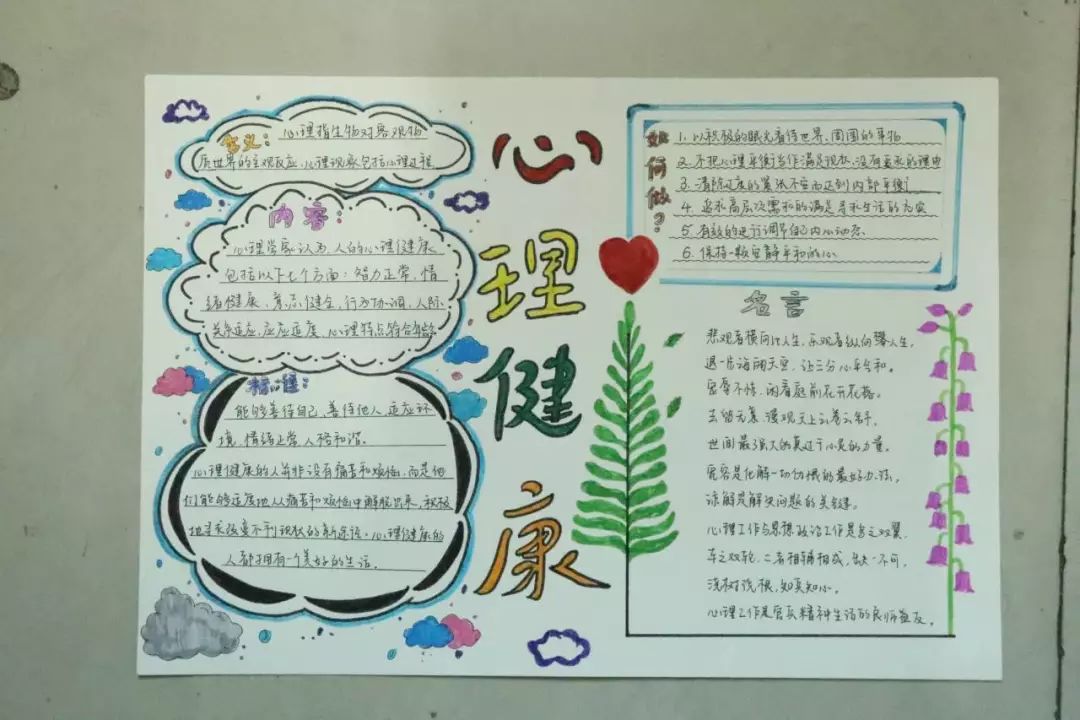 心理健康
含义:
心理指生物对客观物
质世界的主观反应,心理现象包括心理过程
内容:
心理学家认为,人的心理健康
包括以下七个方面:智力正常,情
绪健康,意志健全,行为协调,人际
关系适应,反应适度,心理特点符合年龄
标准:
能够善待自己,善待他人,适应环
境,情绪正常,人格和谐。
心理健康的人并非没有痛苦和烦恼,而是他
们能够适度地从痛苦和烦恼中解脱出来,积极
地寻求改变不利现状的新途径。心理健康的
人都拥有一个美好的生活。
如何做?
1. 以积极的眼光看待世界,周围的事物
2. 不把心理平衡当作满足现状,没有要求的理由
3. 清除过度的紧张不安而达到内部平衡
4. 追求高层次需求的满足寻求生活的充实
5. 有效的进行调节自己内心动态
6. 保持一颗安静平和的心
名言
悲观者横向比人生,乐观者纵向攀人生,
退一片海阔天空,让三分心平气和。
宠辱不惊,闲看庭前花开花落。
去留无意,漫观天上云卷云舒,
世间最强大的莫过于心灵的力量。
宽容是化解一切仇恨的最好办法,
谅解是解决问题的关键。
心理工作与思想政治工作是鸟之双翼,
车之双轮,二者相辅相成,缺一不可,
浇树浇根,知兵知心。
心理工作是官兵精神生活的良师益友。